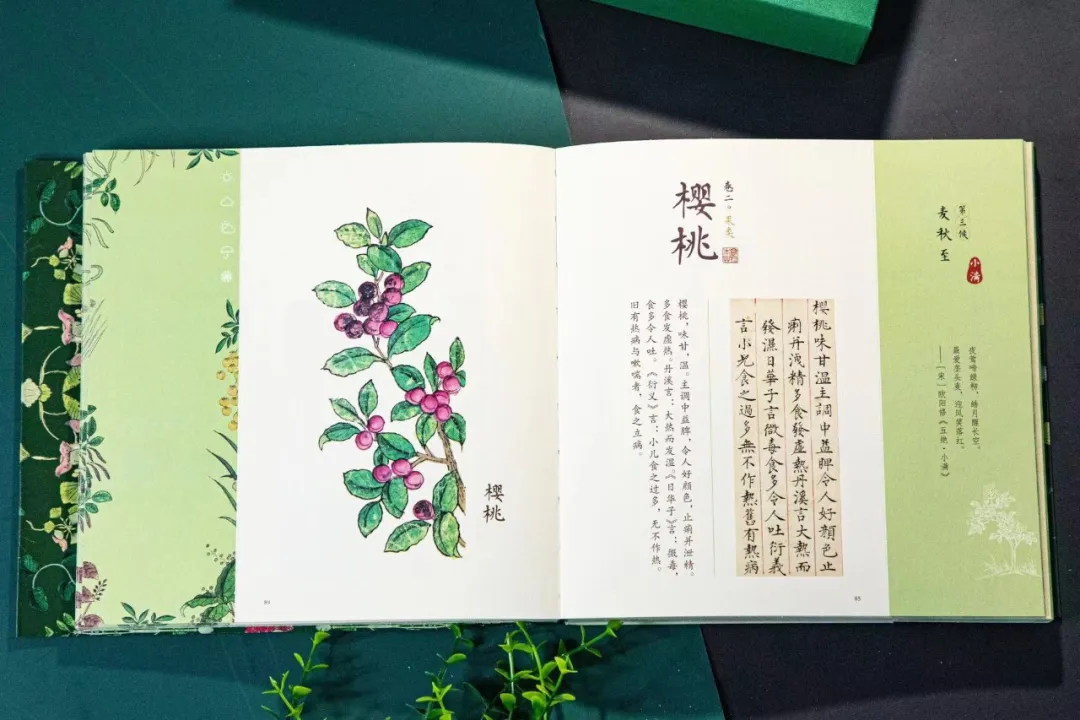 第三候
麦秋至
小满
夜莺啼绿柳，皓月醒长空。
最爱垄头麦，迎风笑落红。
——［宋］欧阳修《五绝·小满》
卷二·果类
樱桃
櫻桃味甘温主調中益脾令人好顏色止
痢并洩精多食發虛熱丹溪言大熱而
發濕日華子言微毒食多令人吐衍義
言小兒食之過多無不作熱舊有熱病
樱桃，味甘，温。主调中益脾，令人好颜色，止痢并泄精。
多食发虚热。丹溪言：大热而发湿。《日华子》言：微毒，
食多令人吐。《衍义》言：小儿食之过多，无不作热。
旧有热病与嗽喘者，食之立病。
樱桃